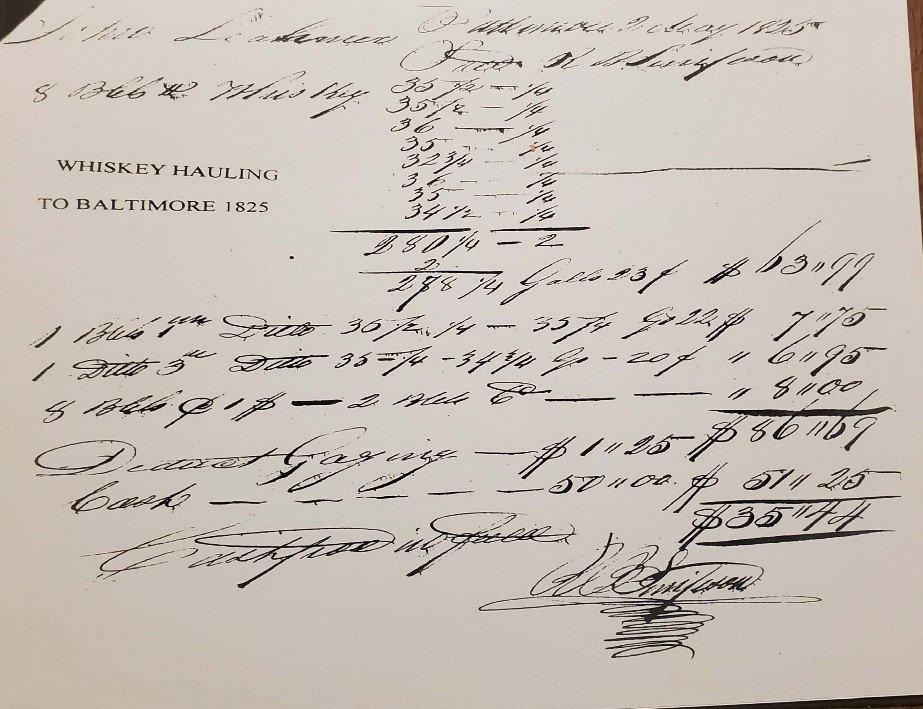 Baltimore 2 May 1825
8 Bbls Whisky 35 1/2 — 1/4
35 1/2 — 1/4
36 — 1/4
35 — 1/4
WHISKEY HAULING
32 3/4 — 1/4
36 — 1/4
35 — 1/4
TO BALTIMORE 1825
34 1/2 — 1/4
280 1/4 — 2
2
278 1/4 Galls 23 ¢ $ 63"99
1 Bbls Ditto 35 1/2 1/4 — 35 1/4 G 22 $ 7"75
1 Ditto 3 Ditto 35 — 1/4 - 34 3/4 G - 20 ¢ " 6"95
8 Bbls @ 1 $ — 2 — — " 8"00
$ 86"69
Deduct Gaging — $ 1"25
Cash — — — — — 50"00 $ 51"25
$35"44
in full